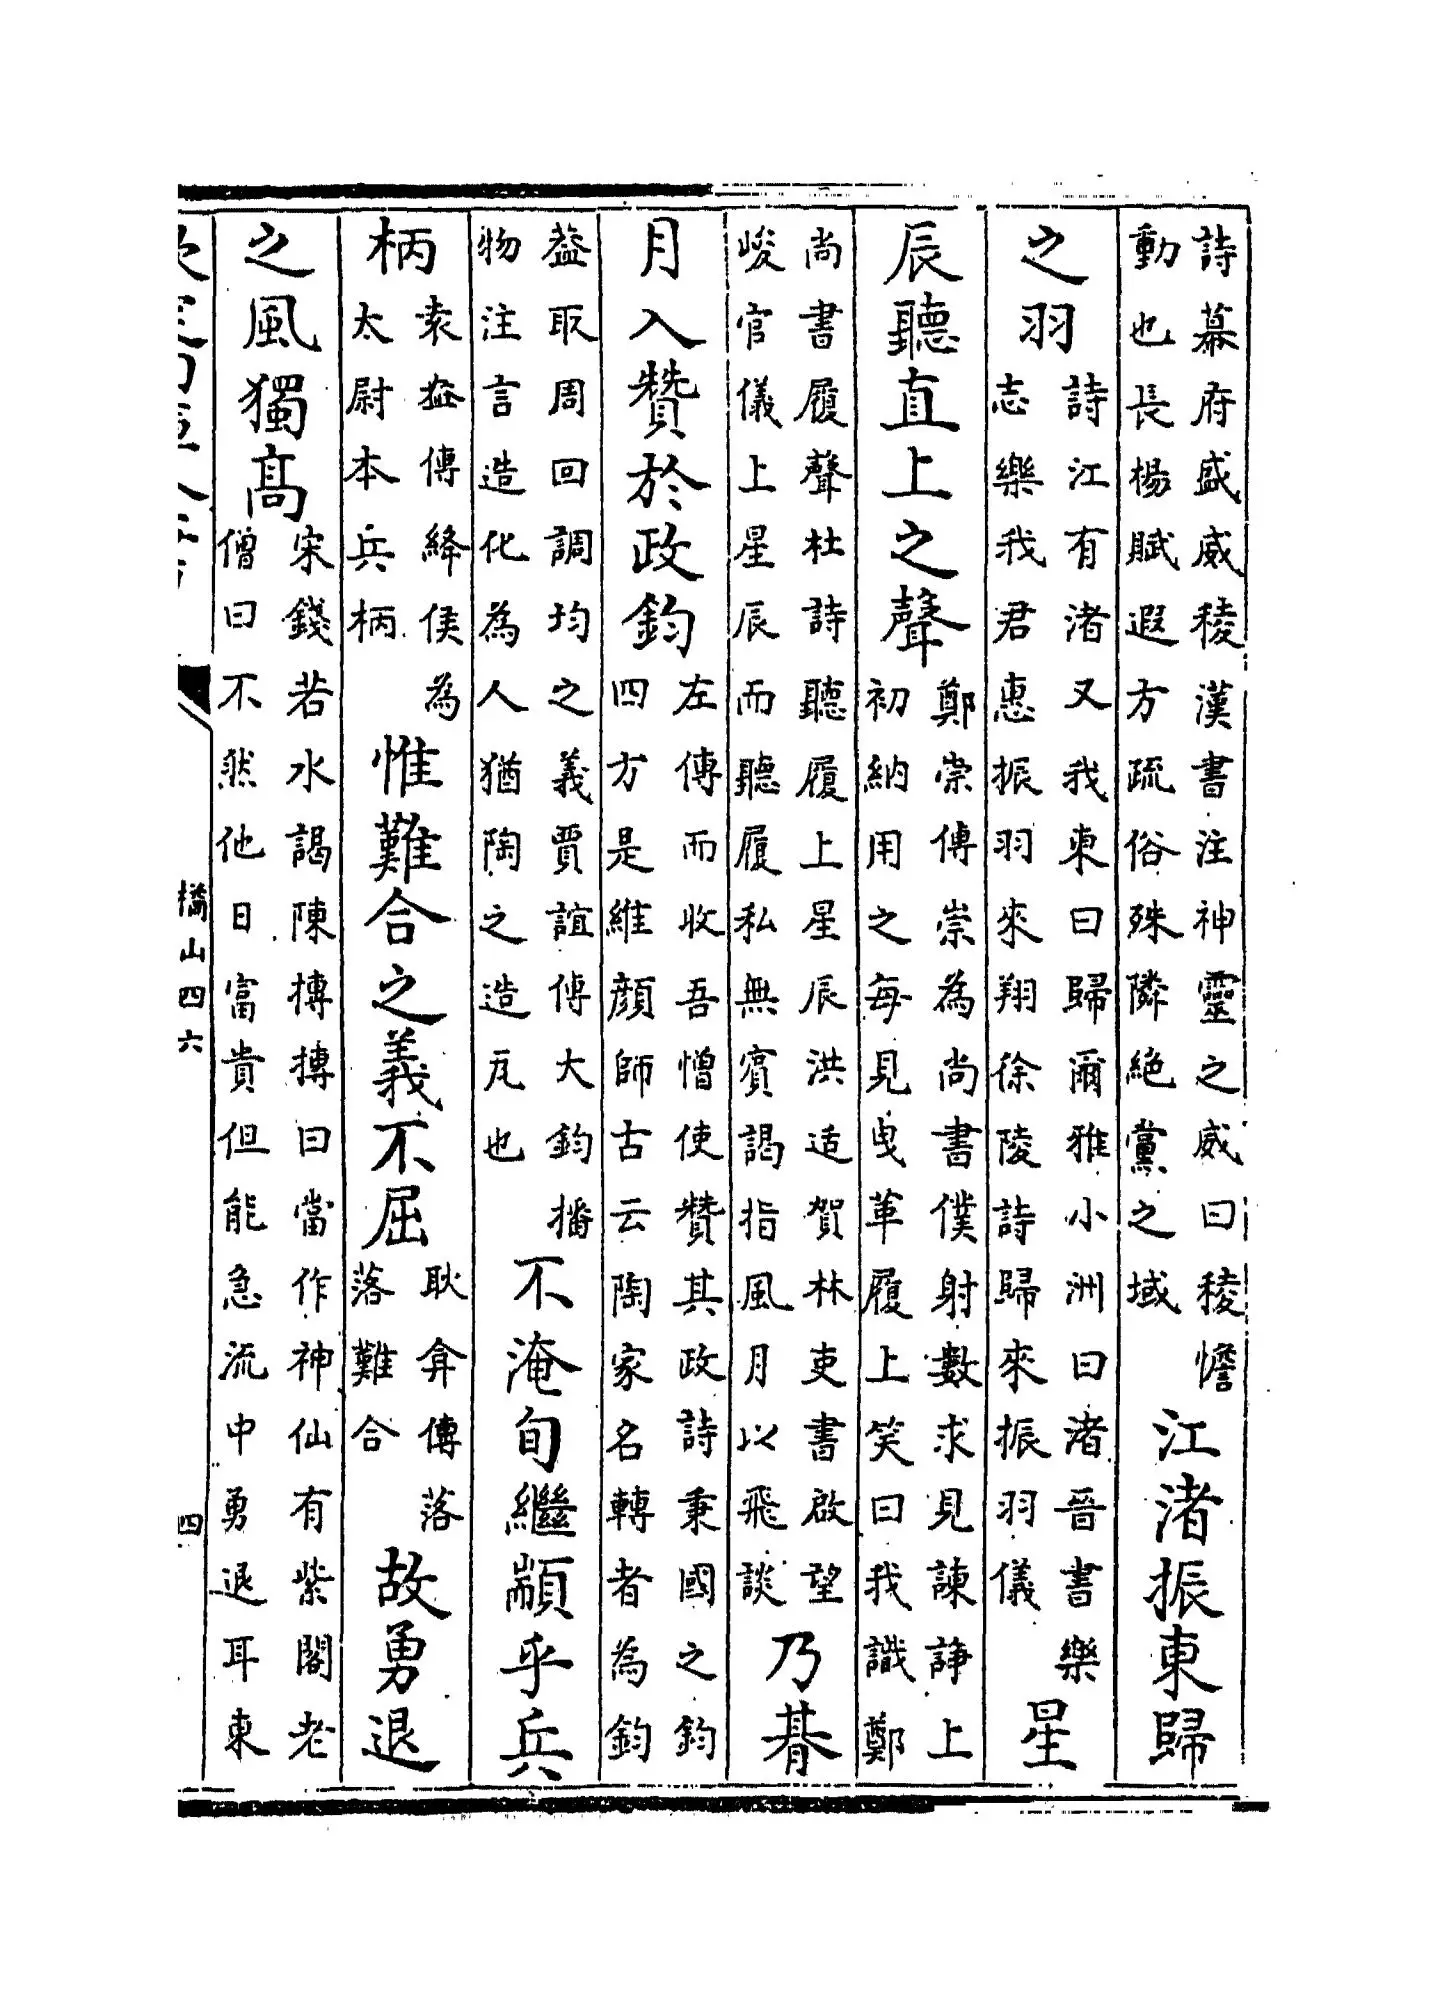 詩幕府盛威稜漢書注神靈之威曰稜憺
動也長楊賦遐方疏俗殊隣絶黨之域
江渚振東歸
之羽
詩江有渚又我東曰歸爾雅小洲曰渚晉書樂
志樂我君惠振羽來翔徐陵詩歸來振羽儀
星
辰聽直上之聲
鄭崇傳崇為尚書僕射數求見諫諍上
初納用之每見曳革履上笑曰我識鄭
尚書履聲杜詩聽履上星辰洪适賀林吏書啟望
峻官儀上星辰而聽履私無賓謁指風月以飛談
乃朞
月入贊於政鈞
左傳而收吾憎使贊其政詩秉國之鈞
四方是維顔師古云陶家名轉者為鈞
葢取周回調均之義賈誼傳大鈞播
物注言造化為人猶陶之造瓦也
不淹旬繼顓乎兵
柄
袁盎傳絳侯為
太尉本兵柄
惟難合之義不屈
耿弇傳落
落難合
故勇退
之風獨髙
宋錢若水謁陳摶摶曰當作神仙有紫閣老
僧曰不然他日富貴但能急流中勇退耳東
橘山四六
四